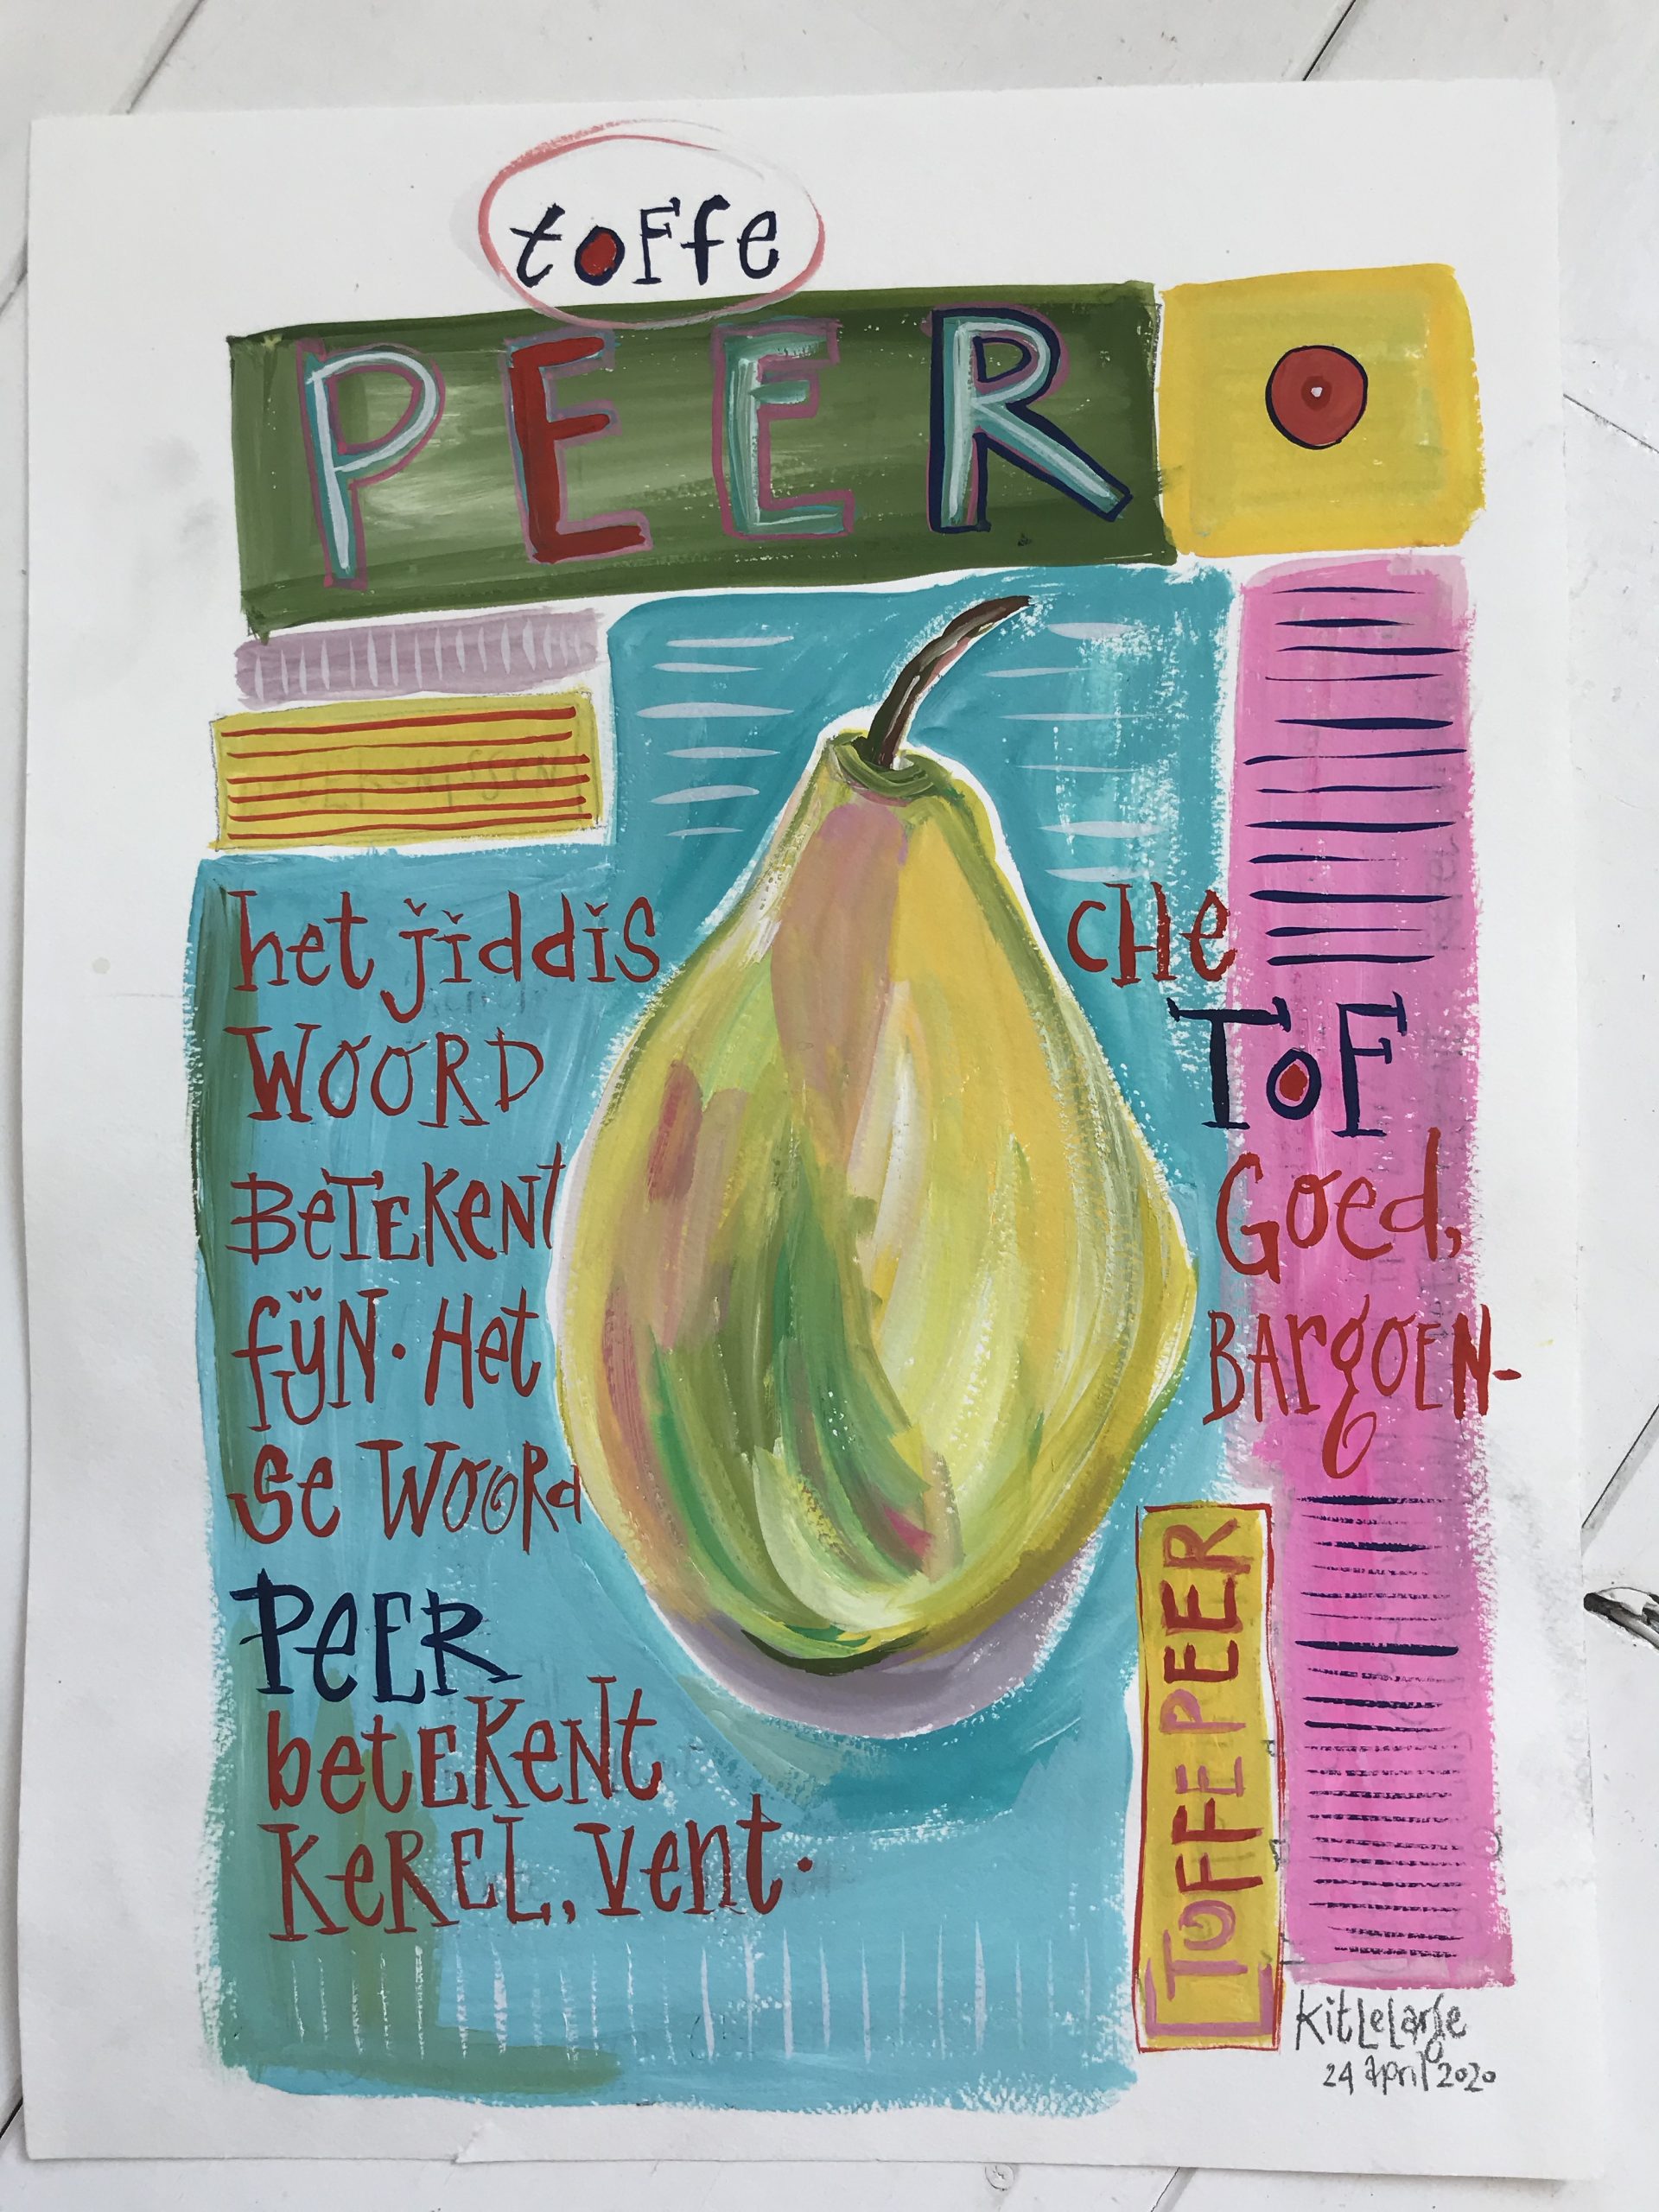 toFfe
PEER
het jiddis CHe
WOORD TOF
BeTEKeNt Goed,
fijN. Het BArgOEN-
Se WoORd
PeER
betEKeNt
KeREL, vent.
TOFFE PEER
KitLeLarge
24 April 2020